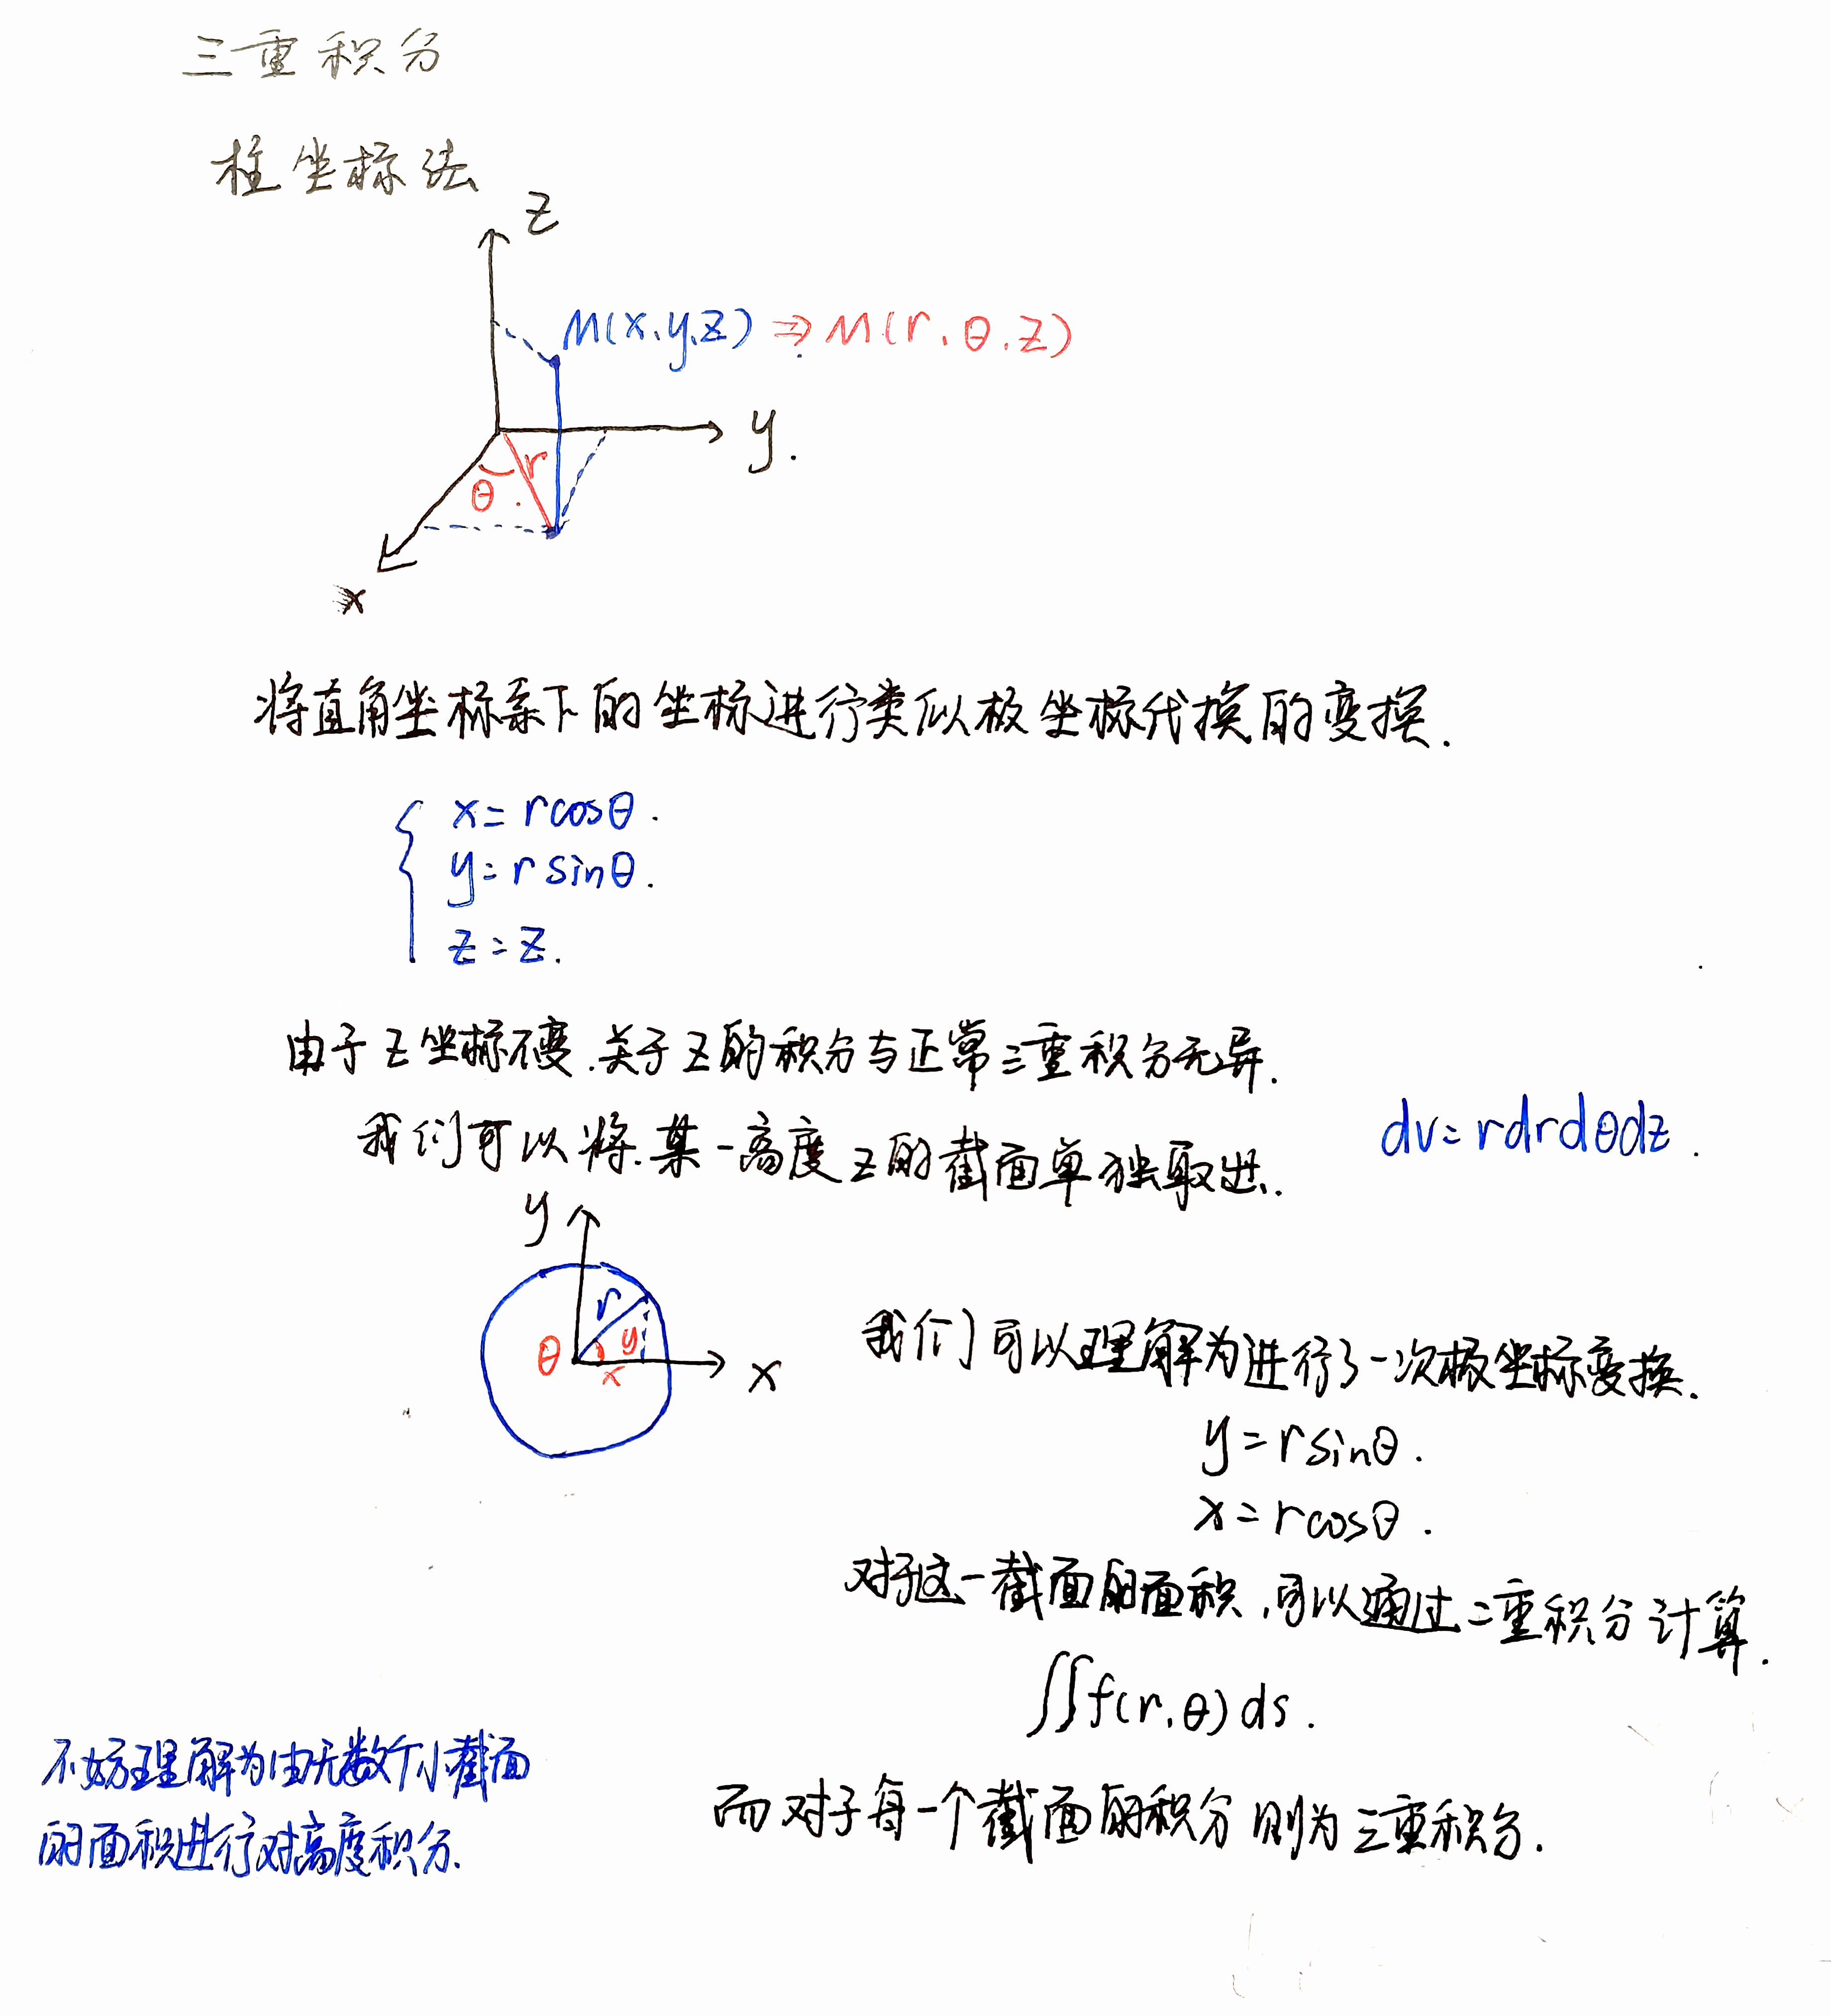 三重积分
柱坐标法
z
M(x,y,z) ⇒ M(r,θ,z)
y.
r
θ
x
将直角坐标系下的坐标进行类似极坐标代换的变换.
x=rcosθ.
y=rsinθ.
z=z.
由于z坐标不变.关于z的积分与正常三重积分无异.
我们可以将.某一高度z的截面单独取出.
dv=rdrdθdz.
y
r
θ
y
x
x
我们可以理解为进行了一次极坐标变换.
y=rsinθ.
x=rcosθ.
对于这一截面的面积,可以通过二重积分计算.
∬f(r,θ)ds.
不妨理解为由无数个小截面
的面积进行对高度积分.
而对于每一个截面的积分则为三重积分.